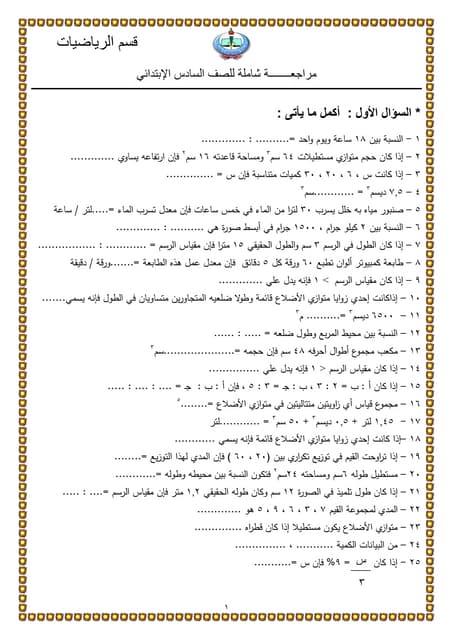 قسم الرياضيات
مراجعـــــــة شاملة للصف السادس الإبتدائي
* السؤال الأول : أكمل ما يأتى :
١ – النسبة بين ١٨ ساعة ويوم واحد =.......... : .............
٢ – إذا كان حجم متوازي مستطيلات ٦٤ سم٣ ومساحة قاعدته ١٦ سم٢ فإن ارتفاعه يساوي .............
٣ – إذا كانت س ، ٦ ، ٢٠ ، ٣٠ كميات متناسبة فإن س = ..............
٤ – ٧,٥ ديسم٣ = ............سم٣
٥ – صنبور مياه به خلل يسرب ٣٠ لترا من الماء في خمس ساعات فإن معدل تسرب الماء =.....لتر / ساعة
٦ – النسبة بين ٢ كيلو جرام ، ١٥٠٠ جرام في أبسط صورة هي .......... : ............
٧ – إذا كان الطول في الرسم ٣ سم والطول الحقيقي ١٥ مترا فإن مقياس الرسم = ............ : .................
٨ – طابعة كمبيوتر ألوان تطبع ٦٠ ورقة كل ٥ دقائق فإن معدل عمل هذه الطابعة =.......ورقة / دقيقة
٩ – إذا كان مقياس الرسم > ١ فإنه يدل علي .............
١٠ – إذاكانت إحدي زوايا متوازي الأضلاع قائمة وطولا ضلعيه المتجاورين متساويان في الطول فإنه يسمي.......
١١ – ٦٥٠٠ ديسم٣ =.......... م٣
١٢ – النسبة بين محيط المربع وطول ضلعه = ..... : ......
١٣ – مكعب مجموع أطوال أحرفه ٤٨ سم فإن حجمه =....................سم٣
١٤ – إذا كان مقياس الرسم < ١ فإنه يدل علي ..............
١٥ – إذا كان أ : ب = ٢ : ٣ ، ب : جـ = ٣ : ٥ ، فإن أ : ب : جـ = .... : .... : .....
١٦ – مجموع قياس أي زاويتين متتاليتين في متوازي الأضلاع =........°
١٧ – ١,٤٥ لتر + ٠,٥ ديسم٣ + ٥٠ سم٣ = ............لتر
١٨ –إذا كانت إحدي زوايا متوازي الأضلاع قائمة فإنه يسمي ............
١٩ – إذا تراوحت القيم في توزيع تكراري بين (٢٠ ، ٦٠ ) فإن المدي لهذا التوزيع =........
٢٠ – مستطيل طوله ٦سم ومساحته ٢٤سم٢ فتكون النسبة بين محيطه وطوله =............
٢١ – إذا كان طول تلميذ في الصورة ١٢ سم وكان طوله الحقيقي ١,٢ متر فإن مقياس الرسم =.... : .....
٢٢ – المدي لمجموعة القيم ٧ ، ٣ ، ٦ ، ٩ ، ٥ هو .............
٢٣ – متوازي الأضلاع يكون مستطيلا إذا كان قطراه ..............
٢٤ – من البيانات الكمية ........... ، .............
٢٥ – إذا كان س = ٩% فإن س =...........
٣
١